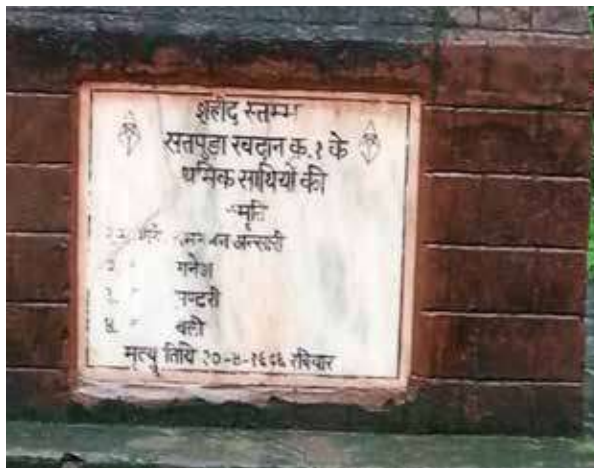 शहीद स्तम्भ
सतपुड़ा खदान क्र. १ के
श्रमिक साथियों की
स्मृति
अन्सारी
२. " गनेश
३. " पन्टरी
४. " बली
मृत्यु तिथि रविवार